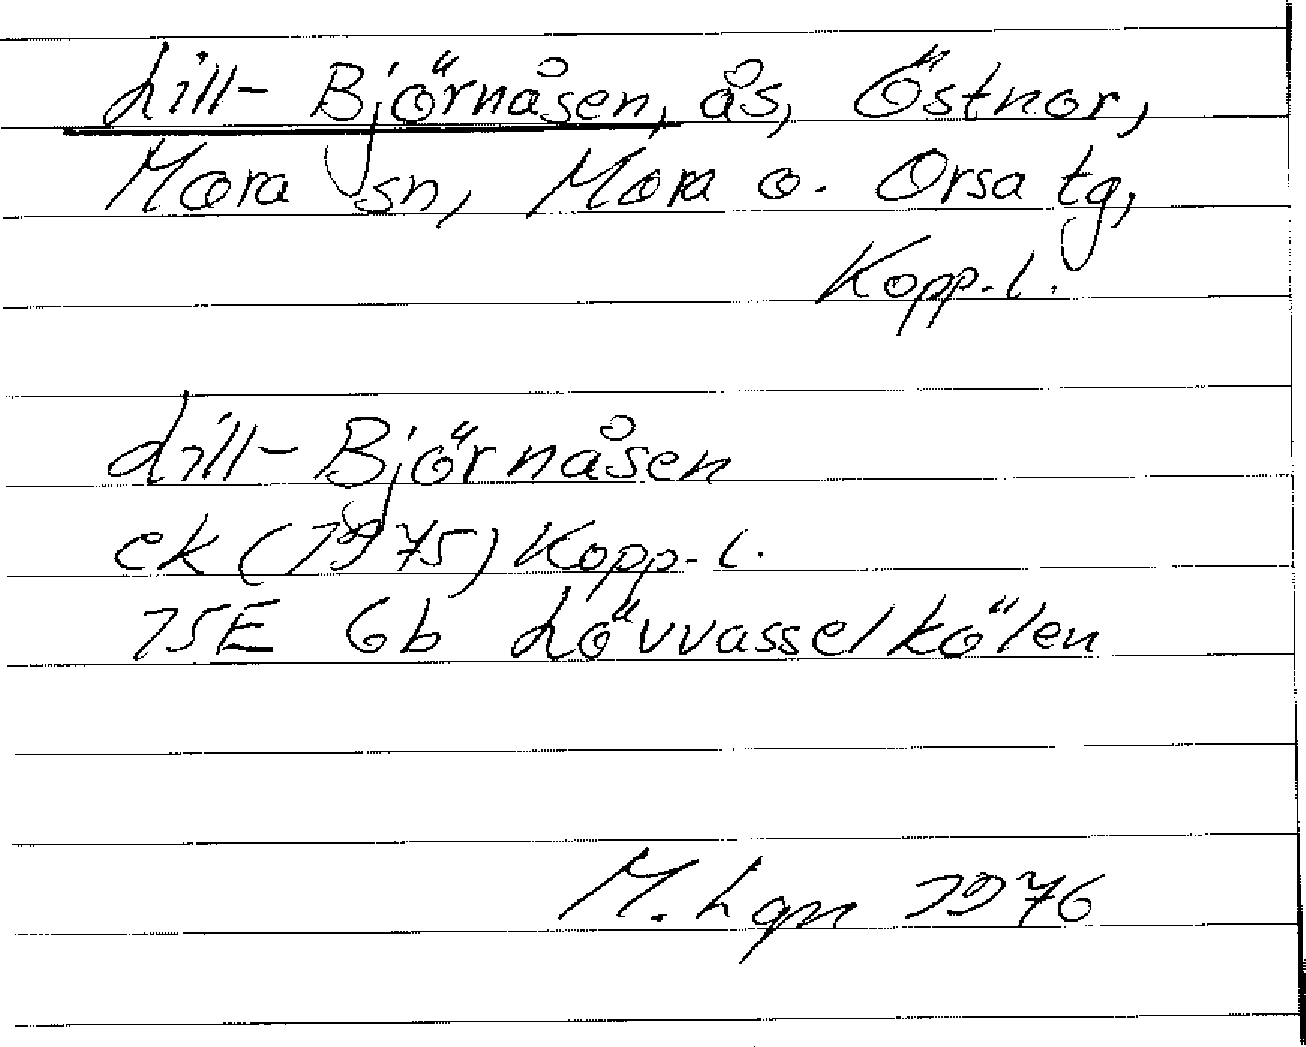 Lill-Björnåsen, ås, Östnor,
Mora sn, Mora o. Orsa tg,
Kopp.l.
Lill-Björnåsen
ek (1975) Kopp.l.
15E 6b Lövvasselkölen
M. Lgn 1976